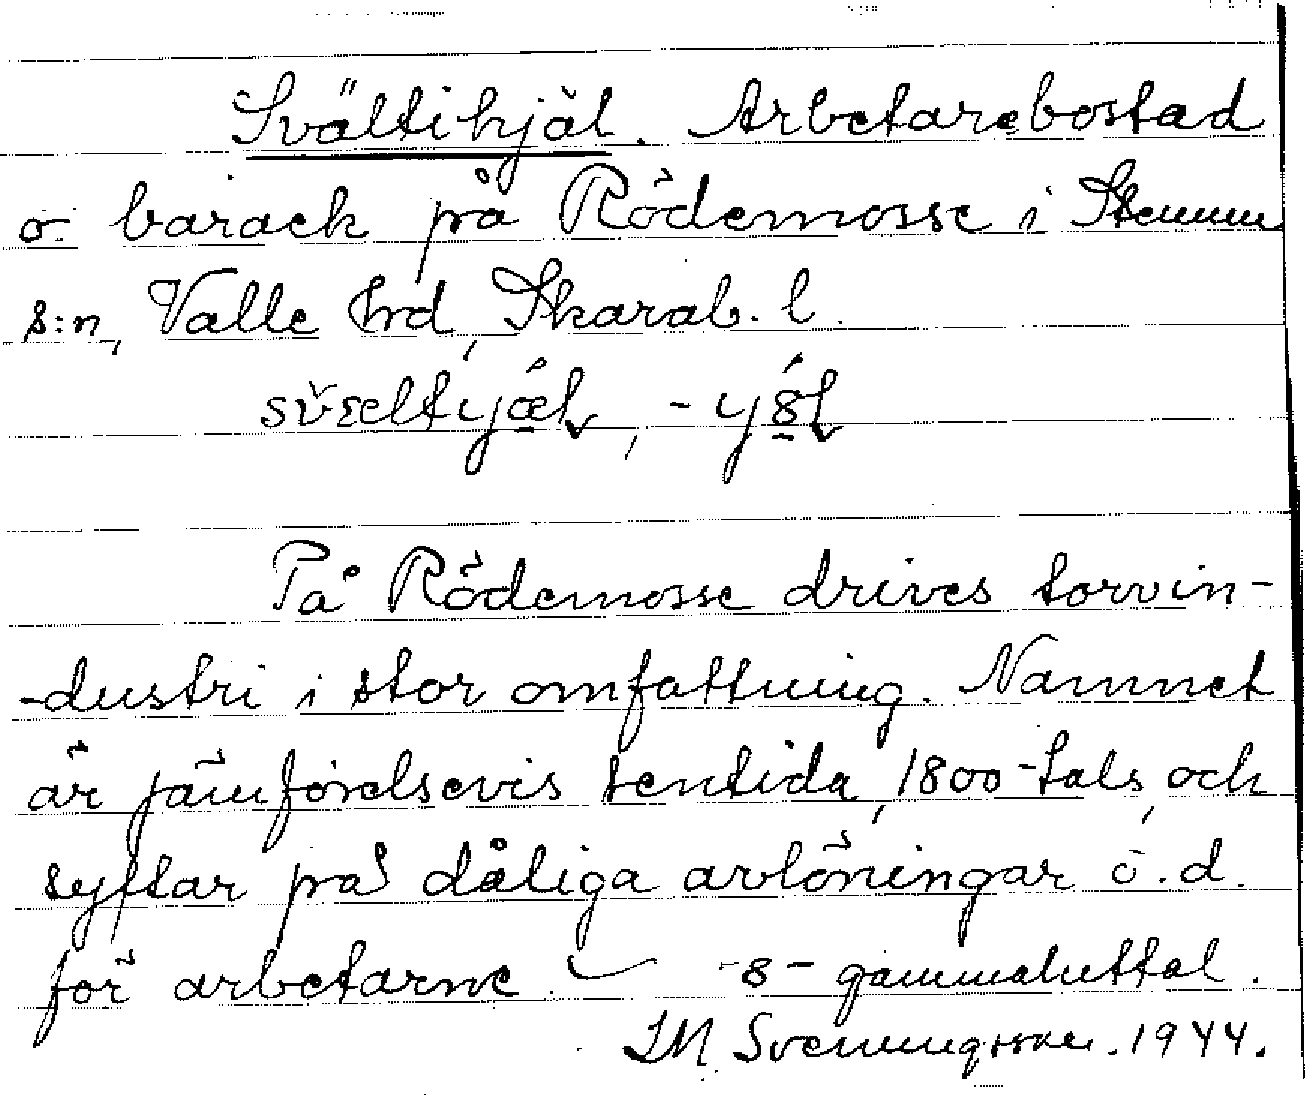 Svältihjäl. Arbetarebostad
o. barack på Rödemosse i Stenum
s:n, Valle hrd, Skarab. l.
På Rödemosse drives torvin-
-dustri i stor omfattning. Namnet
är jämförelsevis sentida, 1800-tals, och
syftar på dåliga avlöningar o.d.
för arbetarne. -8- gammaluttal.
1944.